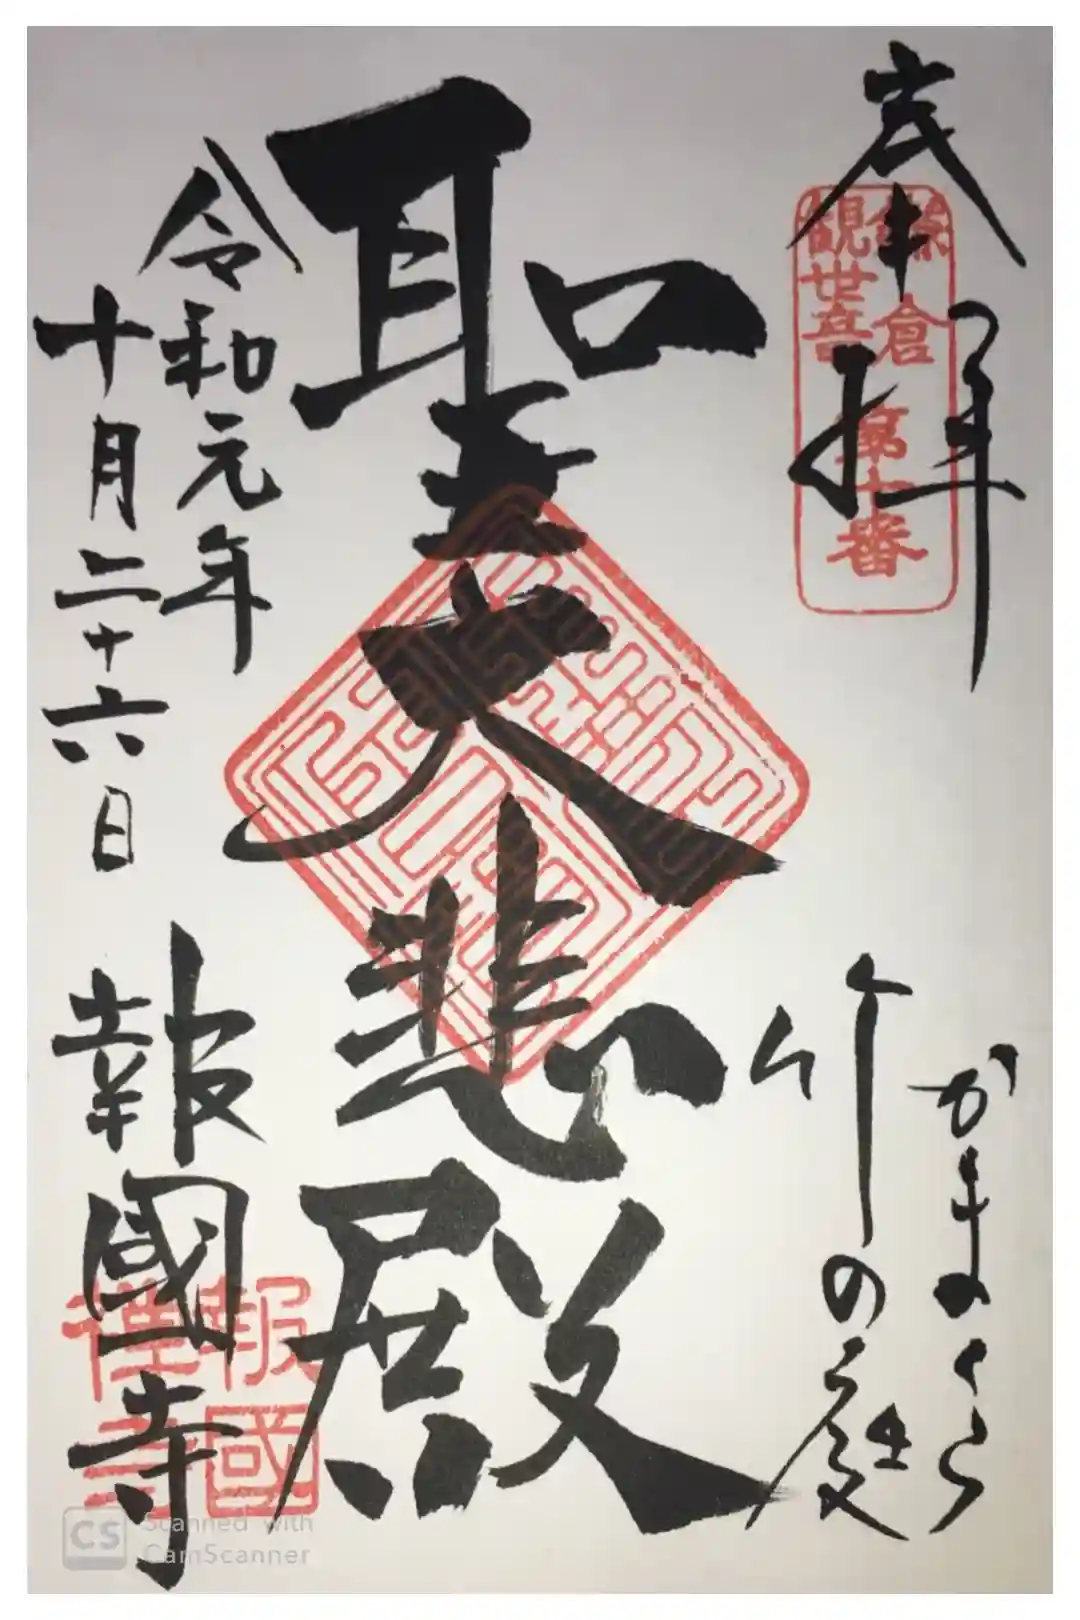 奉拝
鎌倉
観世音
第十番
かまくら
竹の庭
聖大悲殿
令和元年
十月二十六日
報國寺
報國
禅寺
CS Scanned with
CamScanner